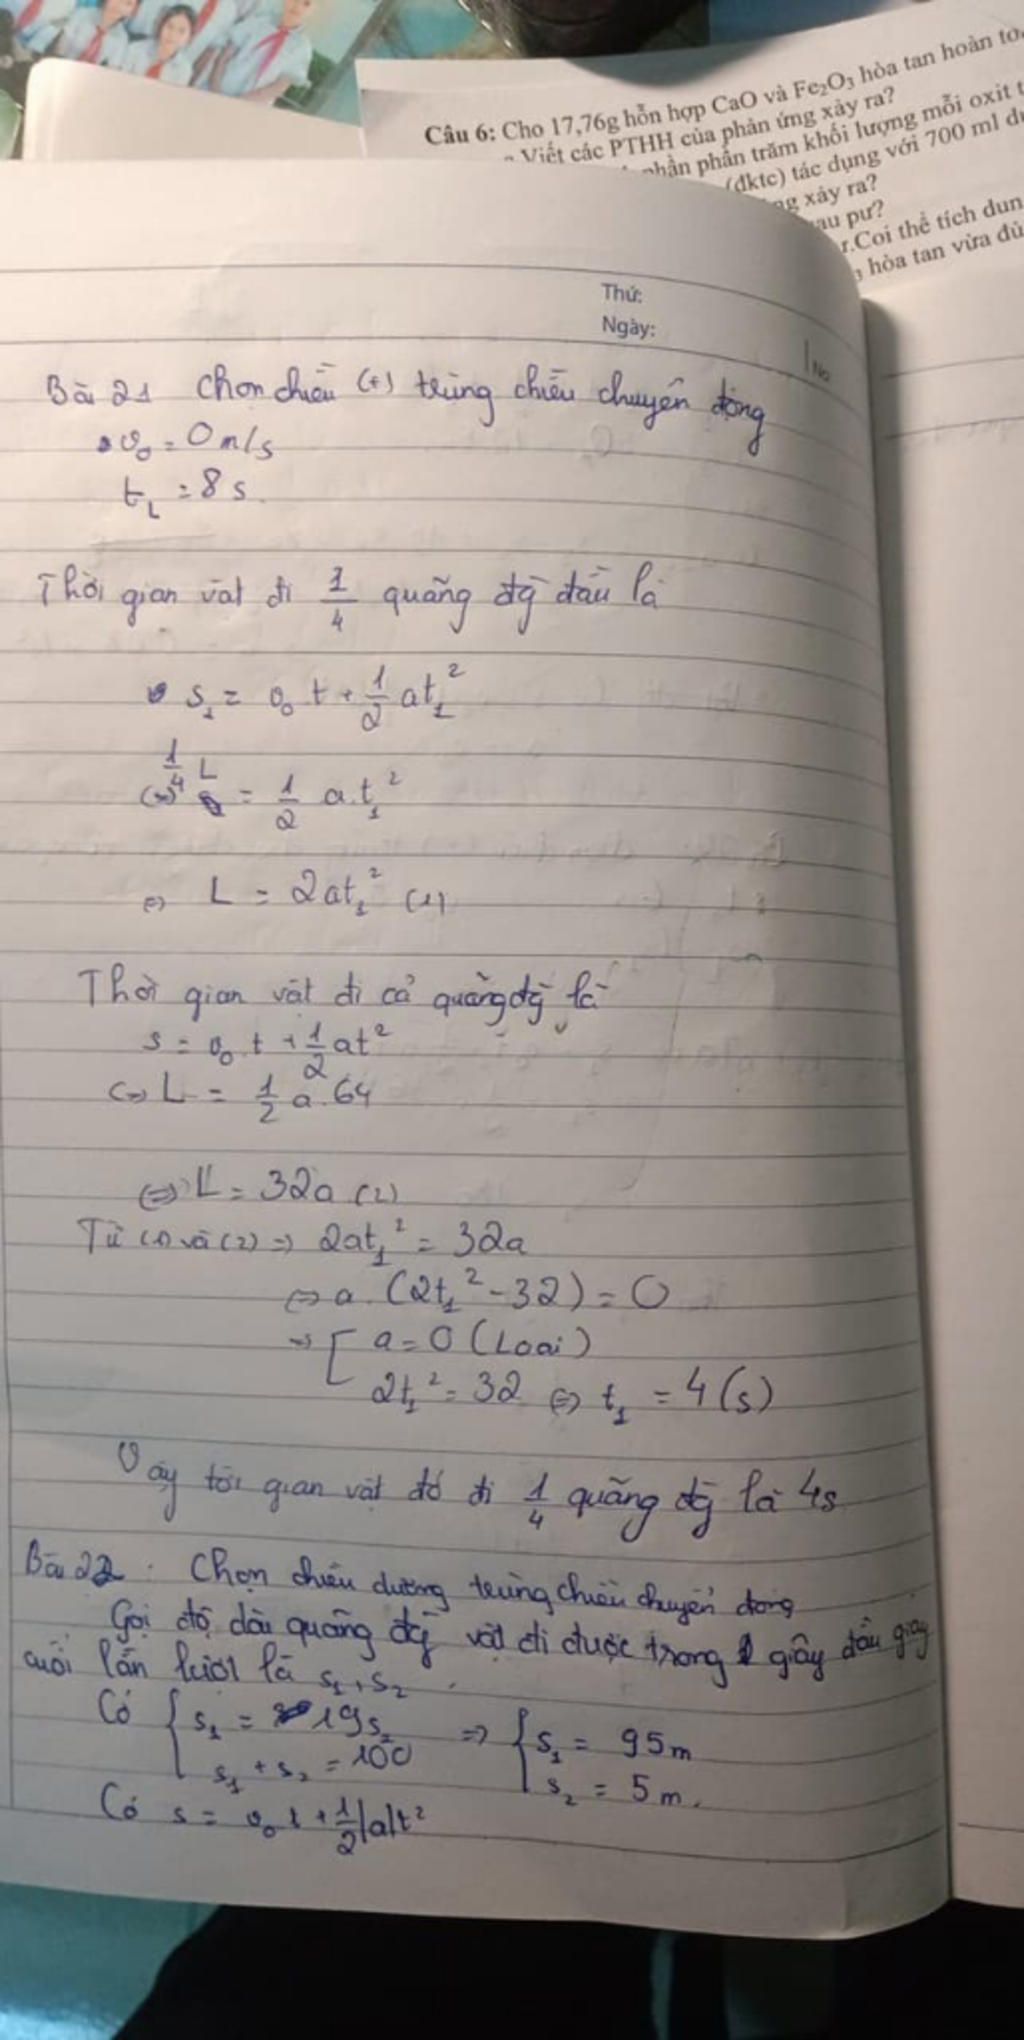 Câu 6: Cho 17,76g hỗn hợp CaO và Fe₂O₃ hòa tan hoàn to
Viết các PTHH của phản ứng xảy ra?
phần phần trăm khối lượng mỗi oxit t
(đktc) tác dụng với 700 ml d
ng xảy ra?
au pư?
r.Coi thể tích dun
hòa tan vừa đủ
Thứ:
Ngày:
No
Bài 21 Chọn chiều (+) trùng chiều chuyển động
v₀ = 0 m/s
t_L = 8 s
Thời gian vật đi 1/4 quãng đg đầu là
s₁ = v₀ t + 1/2 at₁²
(=) 1/4 L = 1/2 a.t₁²
(=) L = 2at₁² (1)
Thời gian vật đi cả quãng đg là
s = v₀ t + 1/2 at²
(=) L = 1/2 a.64
(=) L = 32a (2)
Từ (1) và (2) => 2at₁² = 32a
<=> a.(2t₁² - 32) = 0
=> [ a = 0 (Loại)
2t₁² = 32 <=> t₁ = 4 (s)
Vậy tời gian vật đó đi 1/4 quãng đg là 4s
Bài 22. Chọn chiều dương trùng chiều chuyển động
Gọi độ dài quãng đg vật đi được trong giây đầu giây
cuối lần lượt là s₁, s₂.
Có { s₁ = 19s₂ => { s₁ = 95m
s₁ + s₂ = 100 s₂ = 5m.
Có s = v₀ t + 1/2 |a|t²